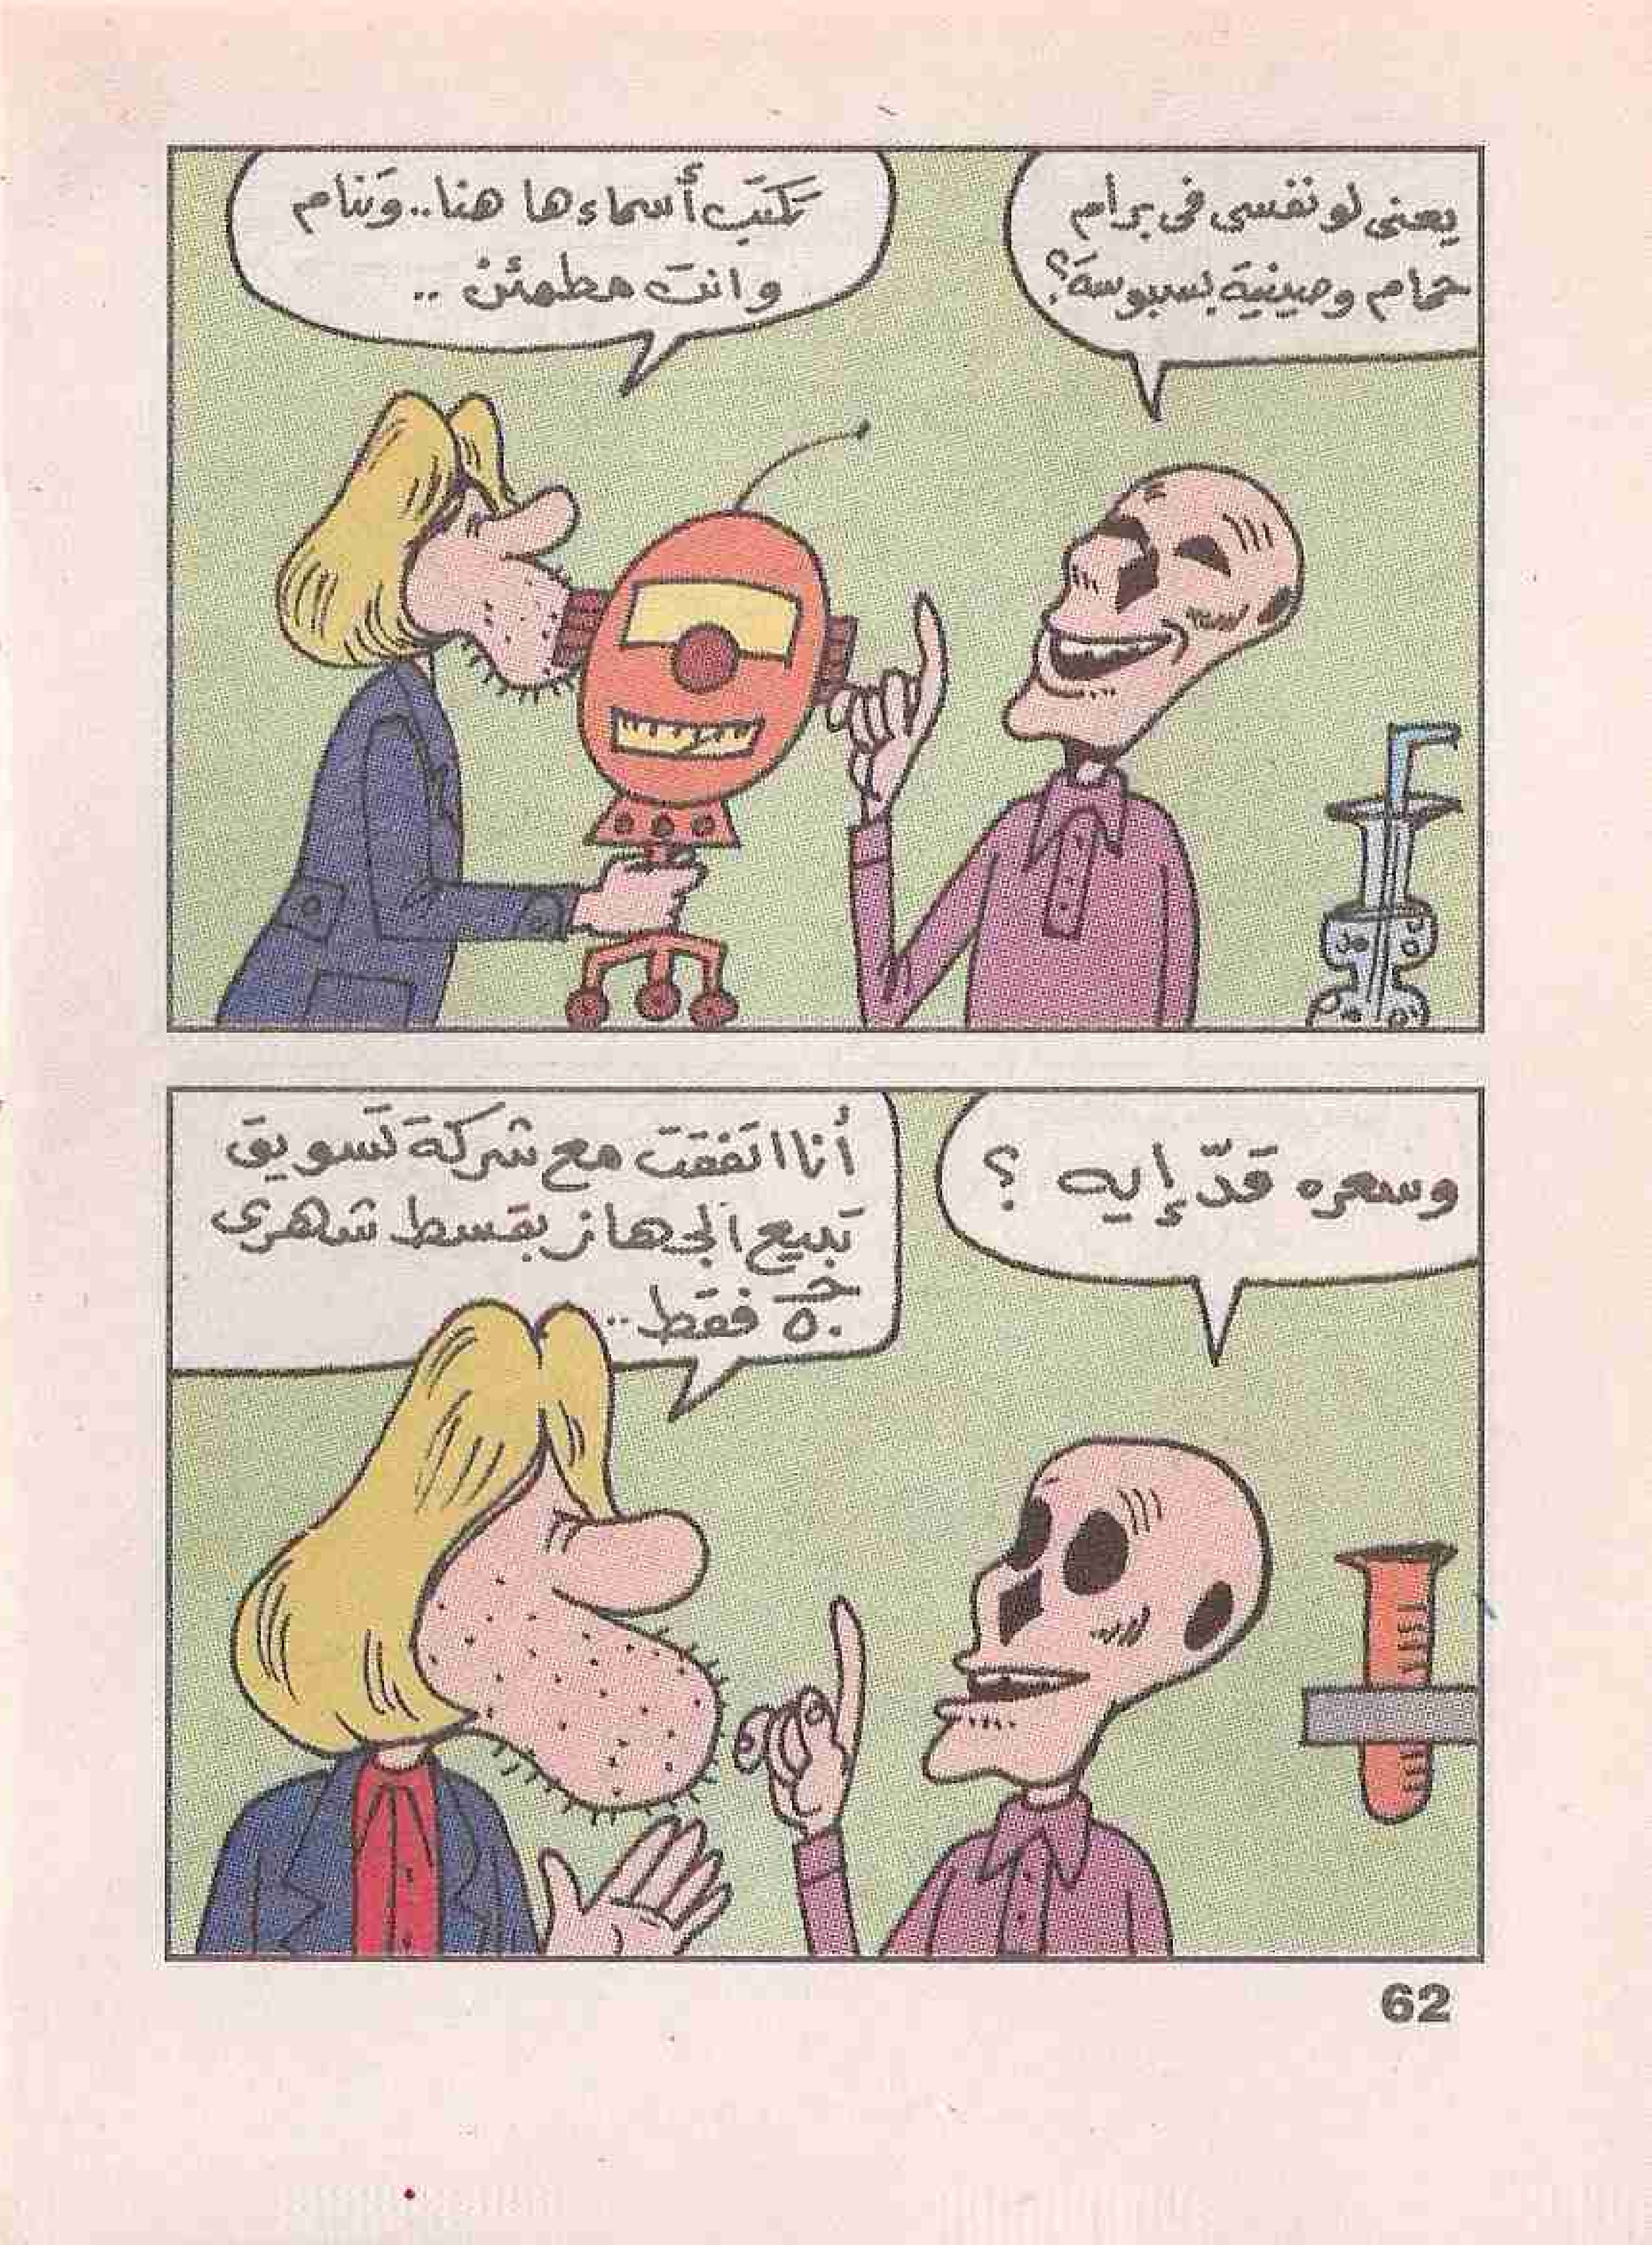 يعنى لو نفسى فى برام
حمام وصينية بسبوسة؟
تكتب أسماءها هنا.. وتنام
وانت مطمئن..
وسعره قدّ إيه ؟
أنا اتفقت مع شركة تسويق
تبيع الجهاز بقسط شهرى
٥٠ جـ فقط..
62